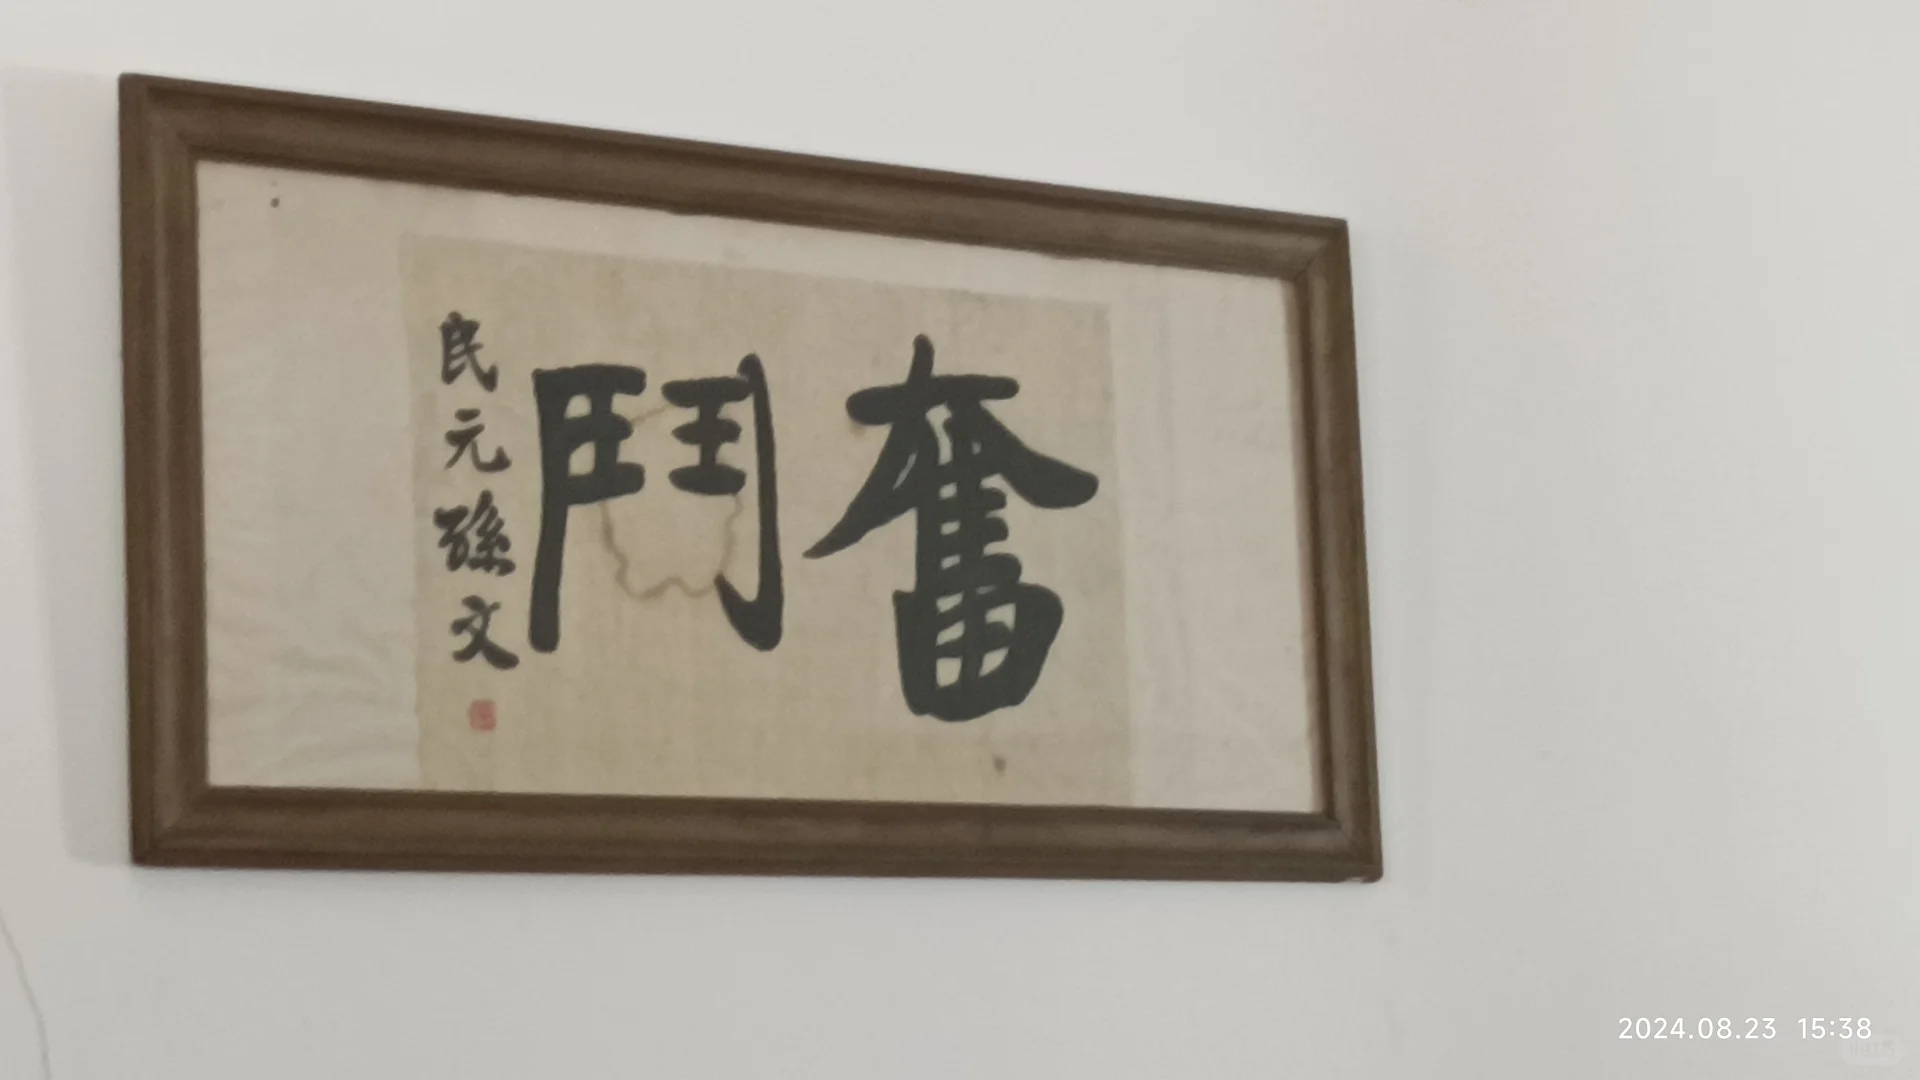 奮鬥
民元孫文
2024.08.23 15:38